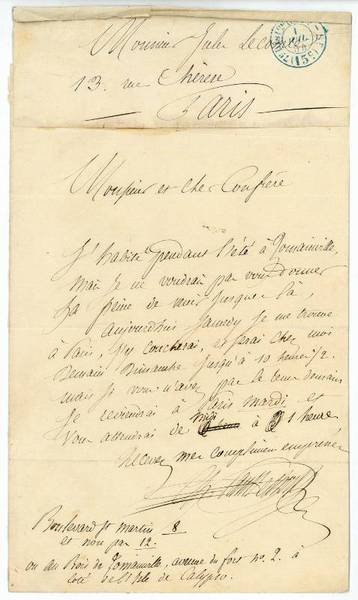 Monsieur Jules Lecomte
13. rue Thérese
Paris
Monsieur et cher Confrère
J'habite pendant l'été à Romainville,
mais je ne voudrai pas vous donner
la peine de venir jusque là,
aujourdhui samedy je me trouve
à Paris, j'y coucherai, et serai chez moi
Demain Dimanche jusqu'à 10 heures 1/2
mais si vous n'avez pas le tems demain
je reviendrai à Paris mardi et
Vous attendrai de midi à 1 heure
Recevez mes complimens empressés
Boulevard St martin 8
et non pas 12.
ou au Bois de Romainville, avenue du fort no. 2. à
coté de l'Ile de Calypso.